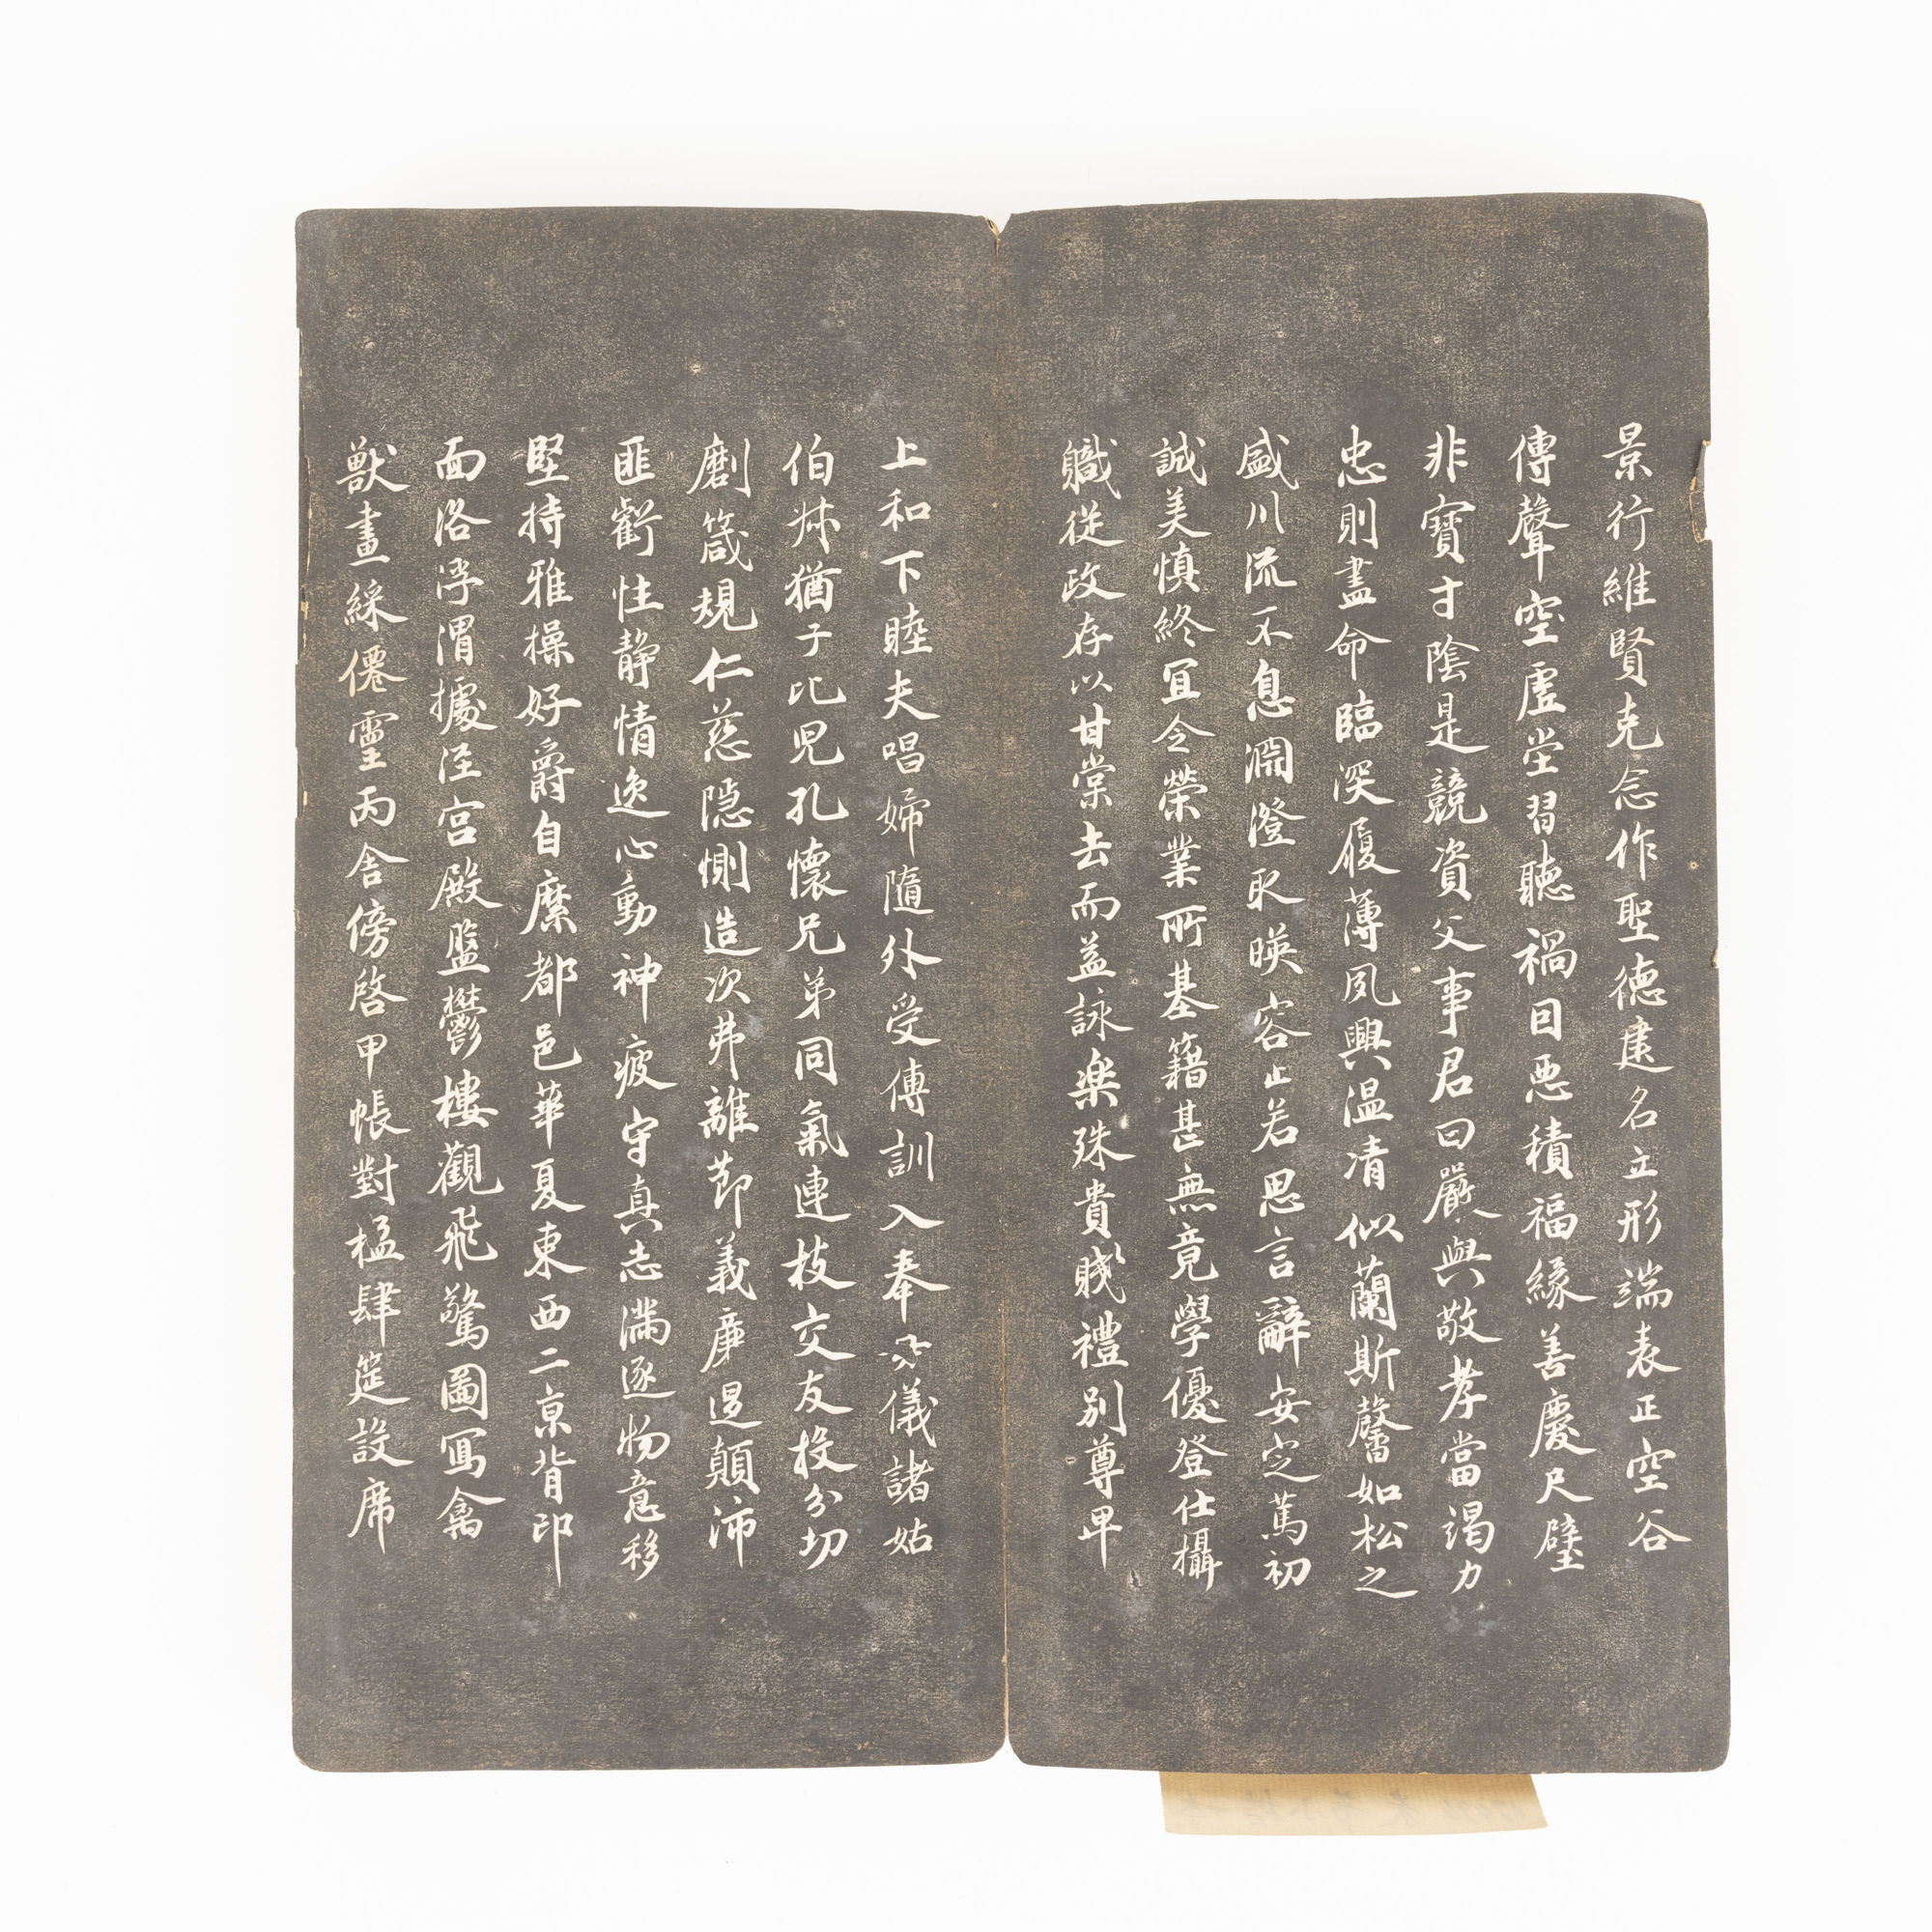 景行維賢克念作聖德建名立形端表正空谷
傳聲空虛堂習聽禍因惡積福緣善慶尺璧
非寶寸陰是競資父事君曰嚴與敬孝當竭力
忠則盡命臨深履薄夙興溫凊似蘭斯馨如松之
盛川流不息淵澄取暎容止若思言辭安定篤初
誠美慎終宜令榮業所基籍甚無竟學優登仕攝
職從政存以甘棠去而益詠樂殊貴賤禮別尊卑
上和下睦夫唱婦隨外受傅訓入奉母儀諸姑
伯叔猶子比兒孔懷兄弟同氣連枝交友投分切
劘箴規仁慈隱惻造次弗離節義廉退顛沛
匪虧性靜情逸心動神疲守真志滿逐物意移
堅持雅操好爵自縻都邑華夏東西二京背邙
面洛浮渭據涇宮殿盤鬱樓觀飛驚圖寫禽
獸畫綵僊靈丙舍傍啓甲帳對楹肆筵設席